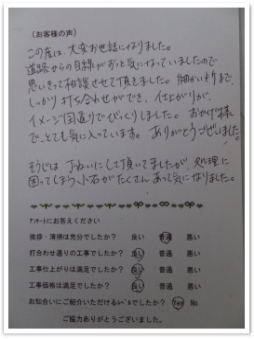 (お客様の声)
この度は、大変お世話になりました。
道路からの目線がずっと気になっていましたので
思いきって相談させて頂きました。細かい所まで、
しっかり打ち合わせができ、仕上がりが、
イメージ図通りでびっくりしました。おかげ様
で、とても気に入っています。ありがとうございました。
そうじは丁ねいにして頂いてましたが、処理に
困ってしまう、小石がたくさんあって気になりました。
アンケートにお答えください
挨拶・清掃は充分でしたか? 良い 普通 悪い
打合わせ通りの工事でしたか? 良い 普通 悪い
工事仕上がりは満足でしたか? 良い 普通 悪い
工事価格は満足でしたか? 良い 普通 悪い
お知合いにご紹介いただけるレベルでしたか? Yes No
ご協力ありがとうございました。